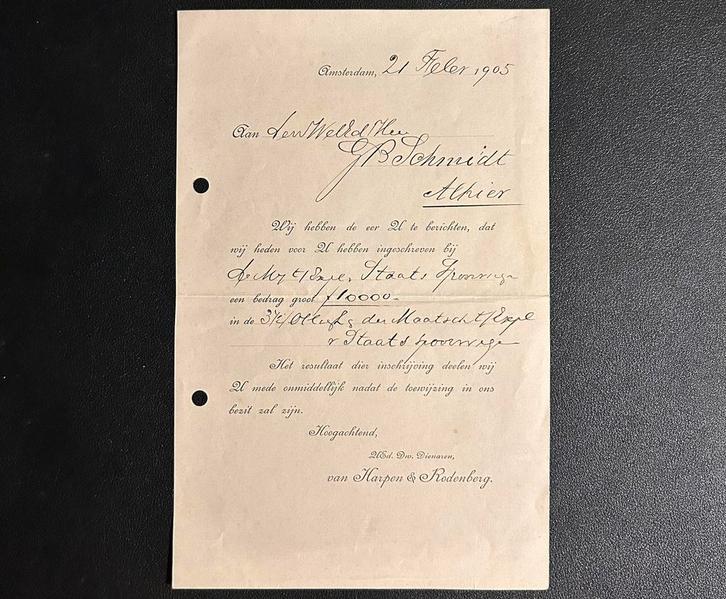 Amsterdam, 21 Febr 1905
Aan den WelEd Heer
GB Schmidt
Alhier
Wij hebben de eer U te berichten, dat
wij heden voor U hebben ingeschreven bij
de Mij t/ Expl. Staats Spoorwegen
een bedrag groot ƒ 10000-
in de 3½% Obligs der Maatsch t/ Expl
v Staatsspoorwegen
Het resultaat dier inschrijving deelen wij
U mede onmiddellijk nadat de toewijzing in ons
bezit zal zijn.
Hoogachtend,
UEd. Dw. Dienaren,
van Harpen & Rodenberg.